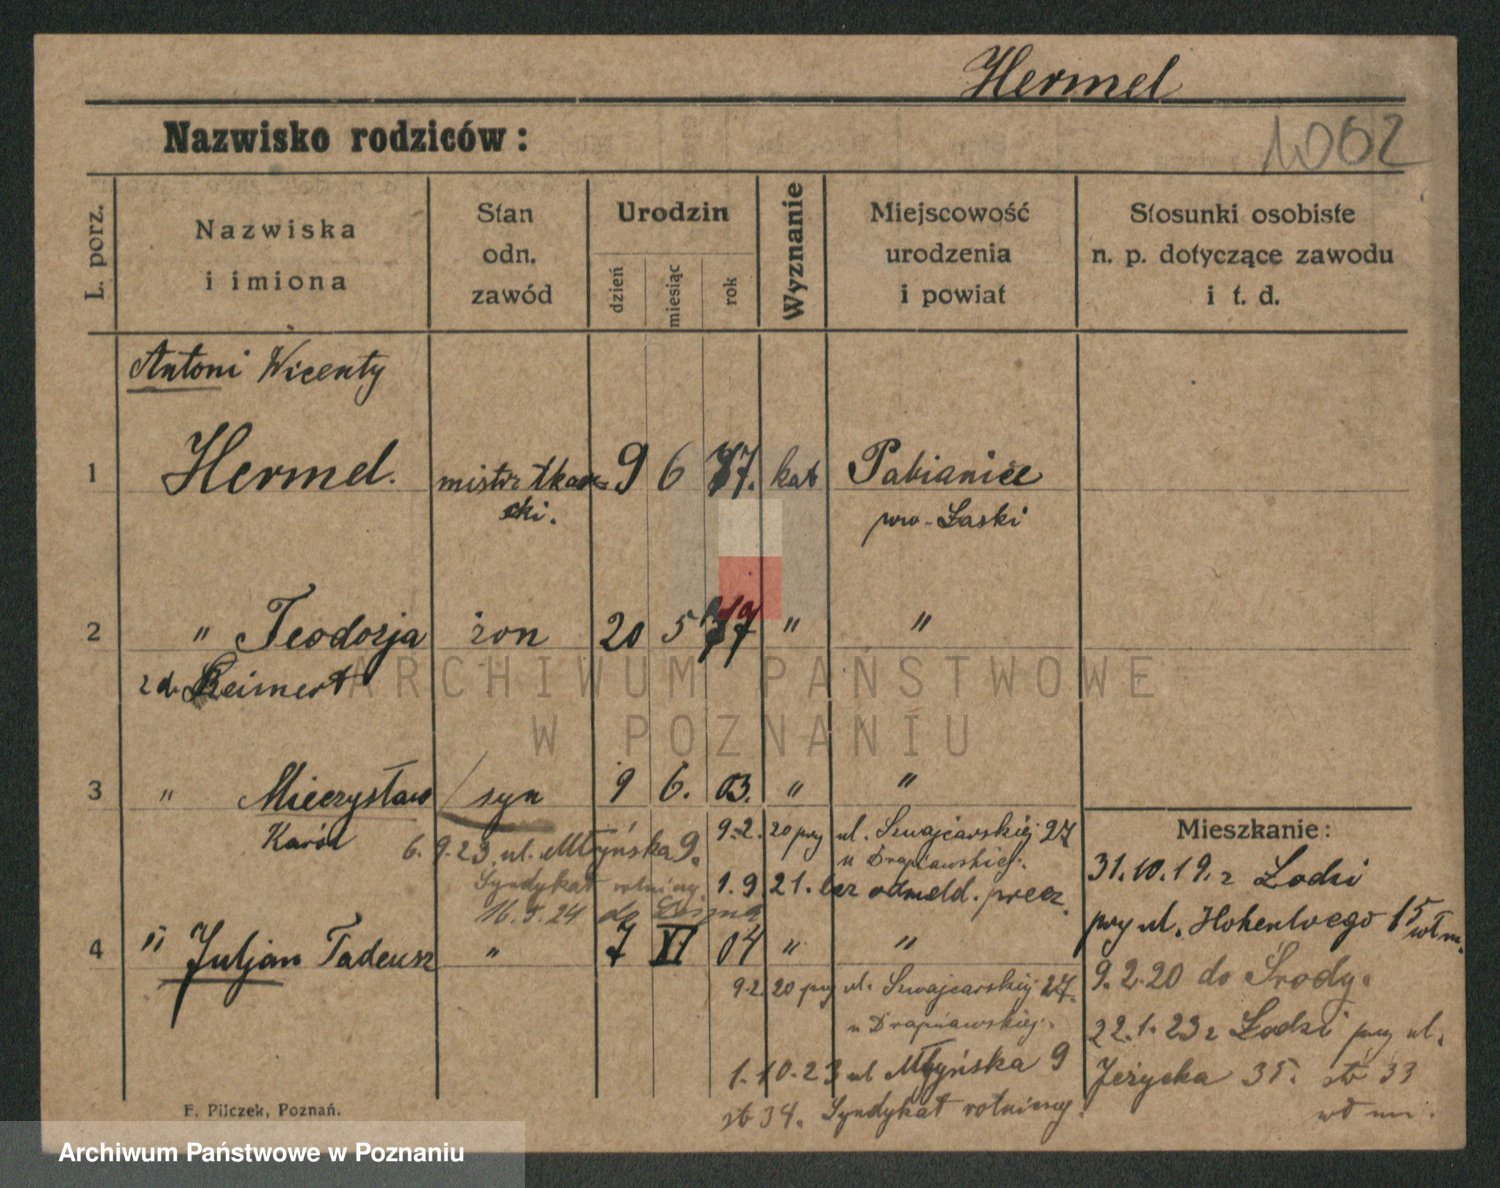 Hermel
Nazwisko rodziców:
1062
L. porz.
Nazwiska
i imiona
Stan
odn.
zawód
Urodzin
dzień
miesiąc
rok
Wyznanie
Miejscowość
urodzenia
i powiat
Stosunki osobiste
n. p. dotyczące zawodu
i t. d.
Antoni Wicenty
1 Hermel. mistrz tkac= 9 6 77. kat Pabianice
cki. pow-Łaski
2 " Teodozja żon 20 5 77 " "
z d. Reimert
ARCHIWUM PAŃSTWOWE
W POZNANIU
3 " Mieczysław syn 9 6. 03. " "
Karól
9.2.20 przy ul. Szwajcarskiej 27
u Drapiawskiej.
6.9.23. ul. Młyńska 9.
Syndykat rolniczy
1.9.21. bez odmeld. precz.
16.5.24 do
4 " Juljan Tadeusz " 7 XI 04 " "
9.2.20 przy ul. Szwajcarskiej 27.
u Drapiawskiej.
1.10.23 ul Młyńska 9
st 34. Syndykat rolniczy.
Mieszkanie:
31.10.19. z Lodzi
przy ul. Hohenloego 15 wł m.
9.2.20 do Środy.
22.1.23 z Łodzi przy ul.
Jeżycka 35. st 33
wł m.
F. Pilczek, Poznań.
Archiwum Państwowe w Poznaniu